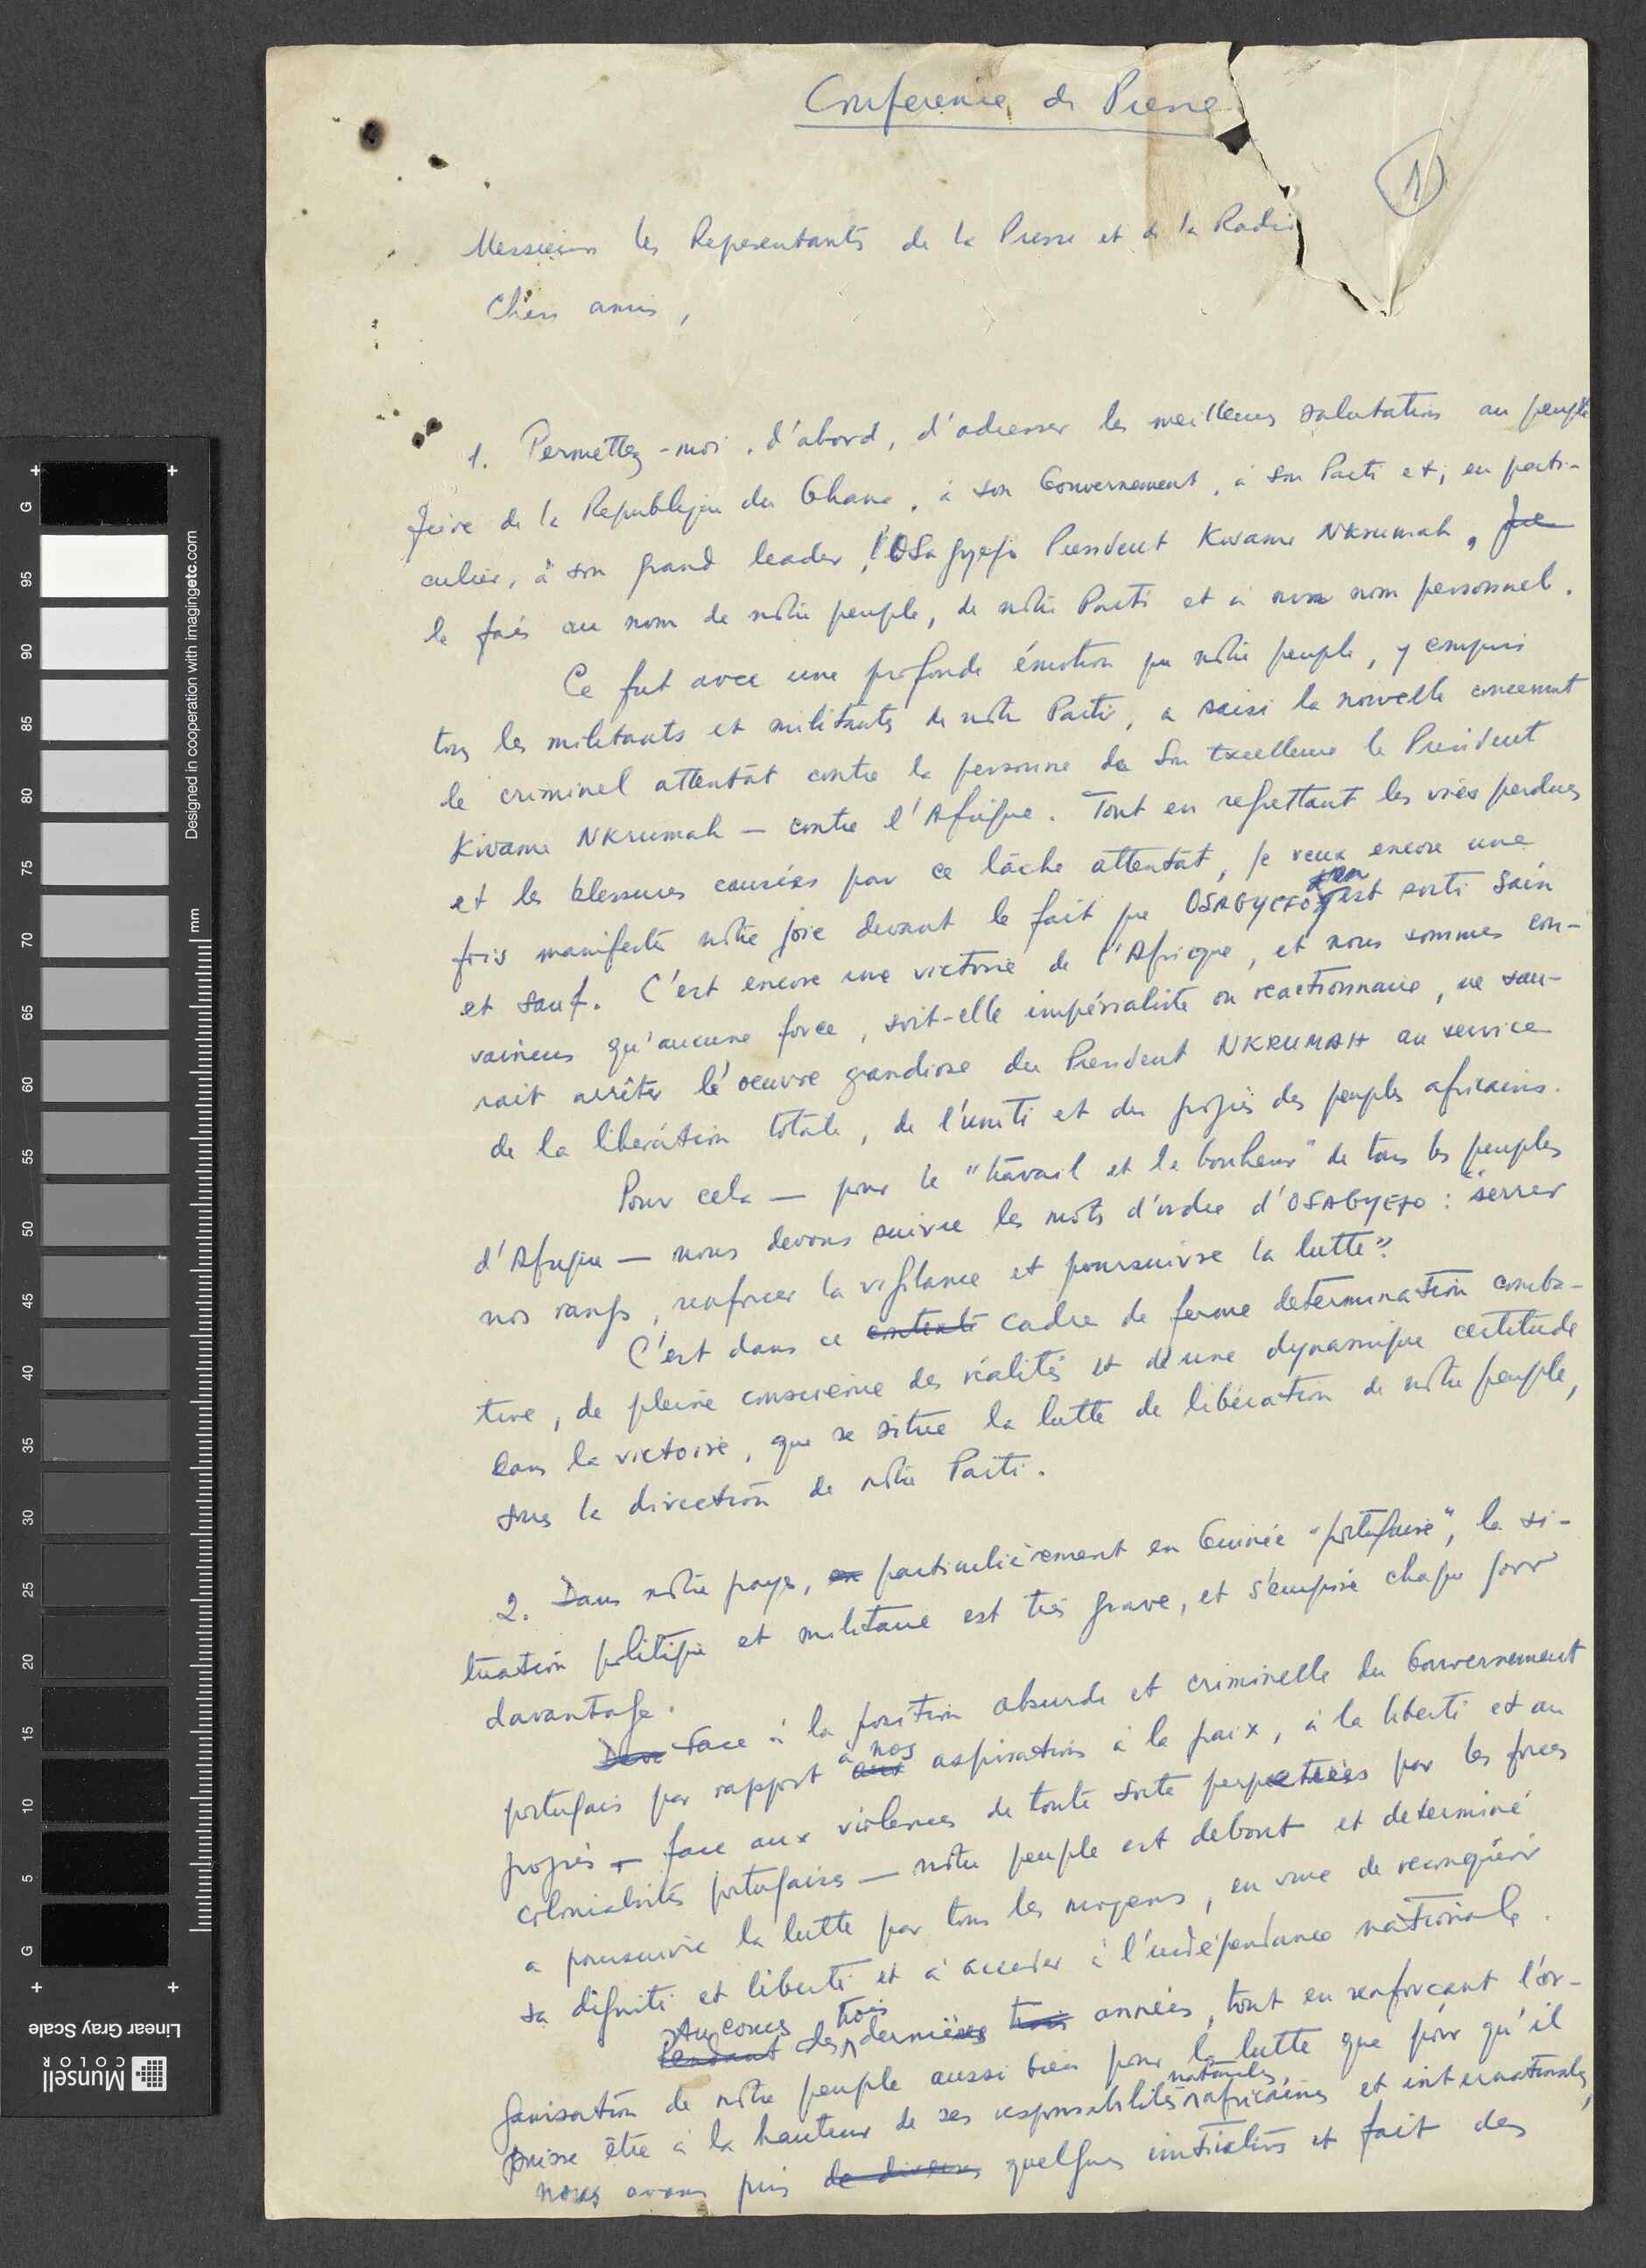 Conference de Presse
1
Messieurs les Representants de la Presse et de la Radio
Chers amis,
1. Permettez-moi, d'abord, d'adresser les meilleures salutations au peuple
frère de la Republique du Ghana, à son Gouvernement, à son Parti et, en parti-
culier, à son grand leader, l'OSagyefo President Kwame Nkrumah, Je
le fais au nom de nôtre peuple, de nôtre Parti et à mon nom personnel.
Ce fut avec une profonde émotion que nôtre peuple, y compris
tous les militants et militants de nôtre Parti, a saisi la nouvelle concernant
le criminel attentat contre la personne de Son Excellence le President
Kwame Nkrumah — contre l'Afrique. Tout en regrettant les vies perdues
et les blessures causées par ce lâche attentat, je veux encore une
fois manifester nôtre joie devant le fait que OSAGYEFO en est sorti sain
et sauf. C'est encore une victoire de l'Afrique, et nous sommes con-
vaincus qu'aucune force, soit-elle impérialiste ou reactionnaire, ne sau-
rait arrêter l'oeuvre grandiose du President NKRUMAH au service
de la libération totale, de l'unité et du progrès des peuples africains.
Pour cela — pour le "travail et le bonheur" de tous les peuples
d'Afrique — nous devons suivre les mots d'ordre d'OSAGYEFO: "serrer
nos rangs, renforcer la vigilance et poursuivre la lutte".
C'est dans ce contexte cadre de ferme determination comba-
tive, de pleine conscience des réalités et d'une dynamique certitude
dans la victoire, que se situe la lutte de libération de nôtre peuple,
sous la direction de nôtre Parti.
2. Dans nôtre pays, en particulièrement en Guinée "portugaise", la si-
tuation politique et militaire est très grave, et s'empire chaque jour
davantage.
Deva Face à la position absurde et criminelle du Gouvernement
portugais par rapport aux à nos aspirations à la paix, à la liberté et au
progrès — face aux violences de toute sorte perpetrées par les forces
colonialistes portugaises — nôtre peuple est debout et determiné
a poursuivre la lutte par tous les moyens, en vue de reconquérir
sa dignité et liberté et à acceder à l'indépendance nationale.
Pendant Au cours des trois dernières trois années, tout en renforcant l'or-
ganisation de nôtre peuple aussi bien pour la lutte que pour qu'il
puisse être à la hauteur de ses responsabilités nationales, africaines et internationales,
nous avons pris de diverses quelques initiatives et fait des
Designed in cooperation with imagingetc.com
mm
G 95 90 85 80 75 70 65 60 55 50 45 40 35 30 25 20 15 10 5 G
Linear Gray Scale
Munsell
COLOR